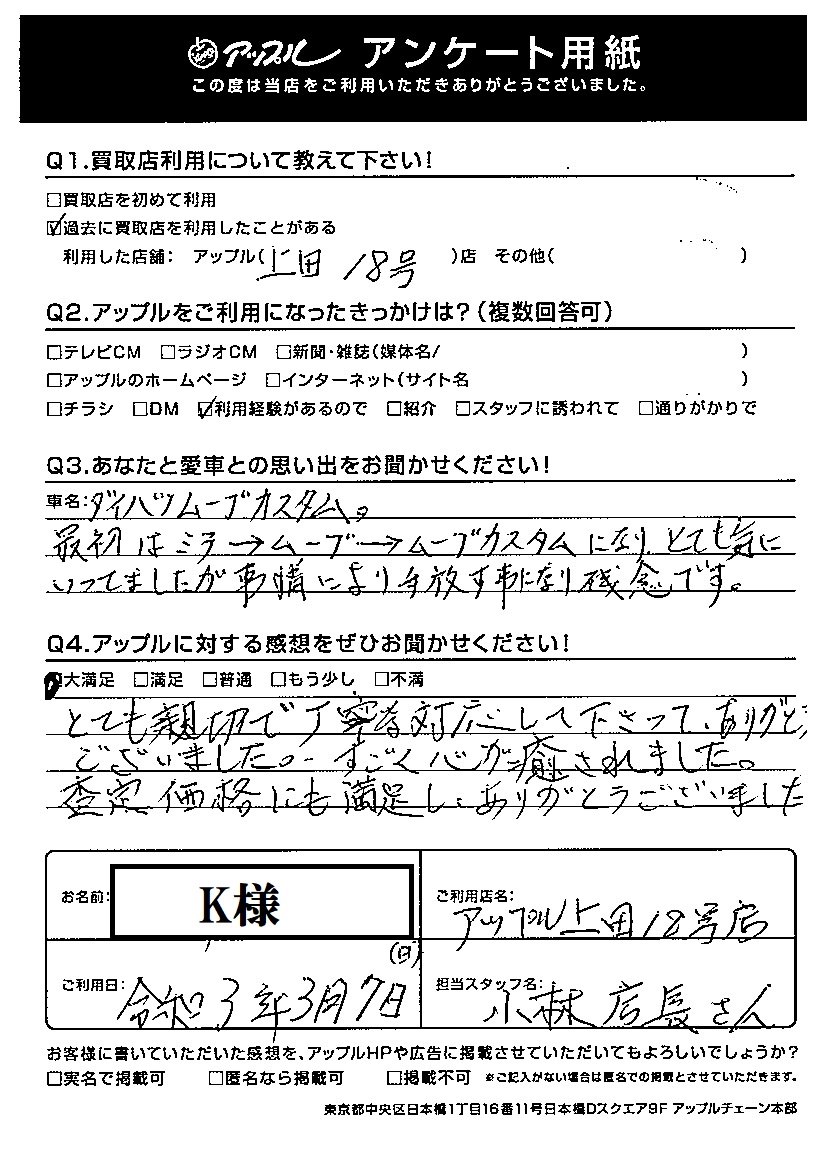 アップル アンケート用紙
この度は当店をご利用いただきありがとうございました。
Q1.買取店利用について教えて下さい!
□買取店を初めて利用
☑過去に買取店を利用したことがある
利用した店舗: アップル(上田18号)店 その他( )
Q2.アップルをご利用になったきっかけは?(複数回答可)
□テレビCM □ラジオCM □新聞・雑誌(媒体名/ )
□アップルのホームページ □インターネット(サイト名 )
□チラシ □DM ☑利用経験があるので □紹介 □スタッフに誘われて □通りがかりで
Q3.あなたと愛車との思い出をお聞かせください!
車名:ダイハツムーブカスタム。
最初はミラ→ムーブ→ムーブカスタムになり、とても気に
いってましたが事情により手放す事になり残念です。
Q4.アップルに対する感想をぜひお聞かせください!
☑大満足 □満足 □普通 □もう少し □不満
とても親切で丁寧な対応して下さって、ありがとう
ございました。すごく心が癒されました。
査定価格にも満足し、ありがとうございました
お名前: K様
ご利用店名: アップル上田18号店
ご利用日: 令和3年3月7日(日)
担当スタッフ名: 小林店長さん
お客様に書いていただいた感想を、アップルHPや広告に掲載させていただいてもよろしいでしょうか?
□実名で掲載可 □匿名なら掲載可 □掲載不可 ※ご記入がない場合は匿名での掲載とさせていただきます。
東京都中央区日本橋1丁目16番11号日本橋Dスクエア9F アップルチェーン本部